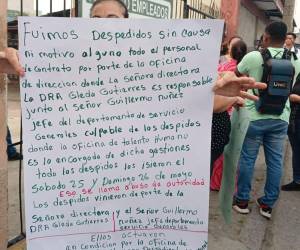 EMPLEADOS
Fuimos Despedidos sin Causa
ni motivo alguno todo el personal
de contrato por parte de la oficina
de direccion donde La Señora directora
La DRA. Gleda Gutierres es responsable
junto al Señor Guillermo nuñez
jefe del departamento de servicio
Generales culpable de los despidos
donde la oficina de talento Humano
es la encargada de dichas gestiones
todo los despidos los isieron el
Sabado 25 y Domingo 26 de mayo
Eso se llama abuso de autoridad
Los despidos vinieron de parte de la
Señora directora y el Señor Guillermo
DRA Gleda Gutierres nuñez jefe departamento
servicio Generales
Ellos actuaron
en condicion por la oficina de